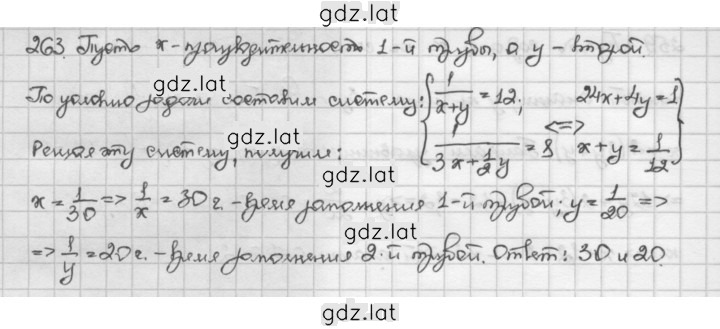 gdz.lat
263. Пусть x - производительность 1-й трубы, а y - второй.
По условию задачи составим систему: { 1/(x+y) = 12; 24x+4y=1 }
gdz.lat
Решая эту систему, получим: { 1/(3x+1/2y) = 8 <=> x+y = 1/12 }
gdz.lat
x = 1/30 => 1/x = 30 г. - время заполнения 1-й трубой; y = 1/20 =>
gdz.lat
=> 1/y = 20 г. - время заполнения 2-й трубой. Ответ: 30 и 20.
gdz.lat